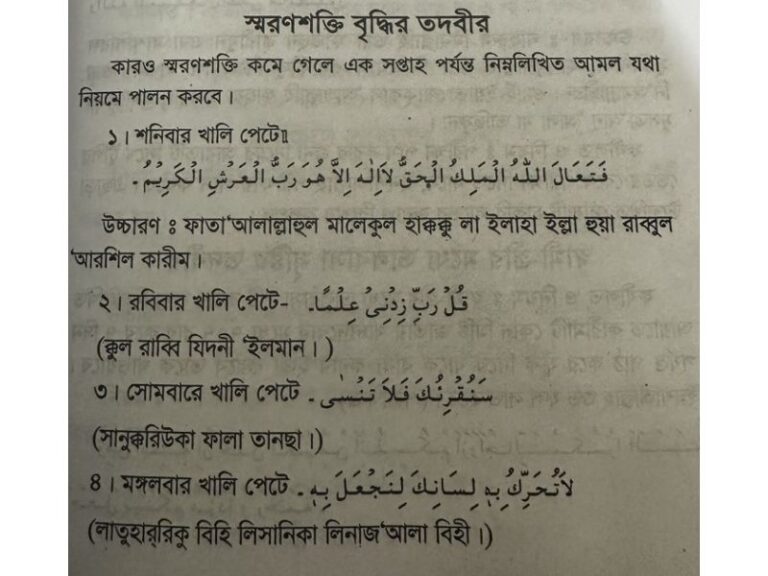 স্মরণশক্তি বৃদ্ধির তদবীর
কারও স্মরণশক্তি কমে গেলে এক সপ্তাহ পর্যন্ত নিম্নলিখিত আমল যথা
নিয়মে পালন করবে।
১। শনিবার খালি পেটে॥
فَتَعَالَ اللّٰهُ الْمَلِكُ الْحَقُّ لَااِلٰهَ اِلَّا هُوَ رَبُّ الْعَرْشِ الْكَرِيْمُ۔
উচ্চারণ ঃ ফাতা‘আলাল্লাহুল মালেকুল হাক্কক্কু লা ইলাহা ইল্লা হুয়া রাব্বুল
‘আরশিল কারীম।
২। রবিবার খালি পেটে- قُلْ رَبِّ زِدْنِىْ عِلْمًا۔
(ক্কুল রাব্বি যিদনী ‘ইলমান।)
৩। সোমবারে খালি পেটে سَنُقْرِئُكَ فَلَا تَنْسٰى۔
(সানুক্করিউকা ফালা তানছা।)
৪। মঙ্গলবার খালি পেটে لَاتُحَرِّكْ بِهٖ لِسَانِكَ لِنَجْعَلَ بِهٖ۔
(লাতুহাররিকু বিহি লিসানিকা লিনাজ‘আলা বিহী।)